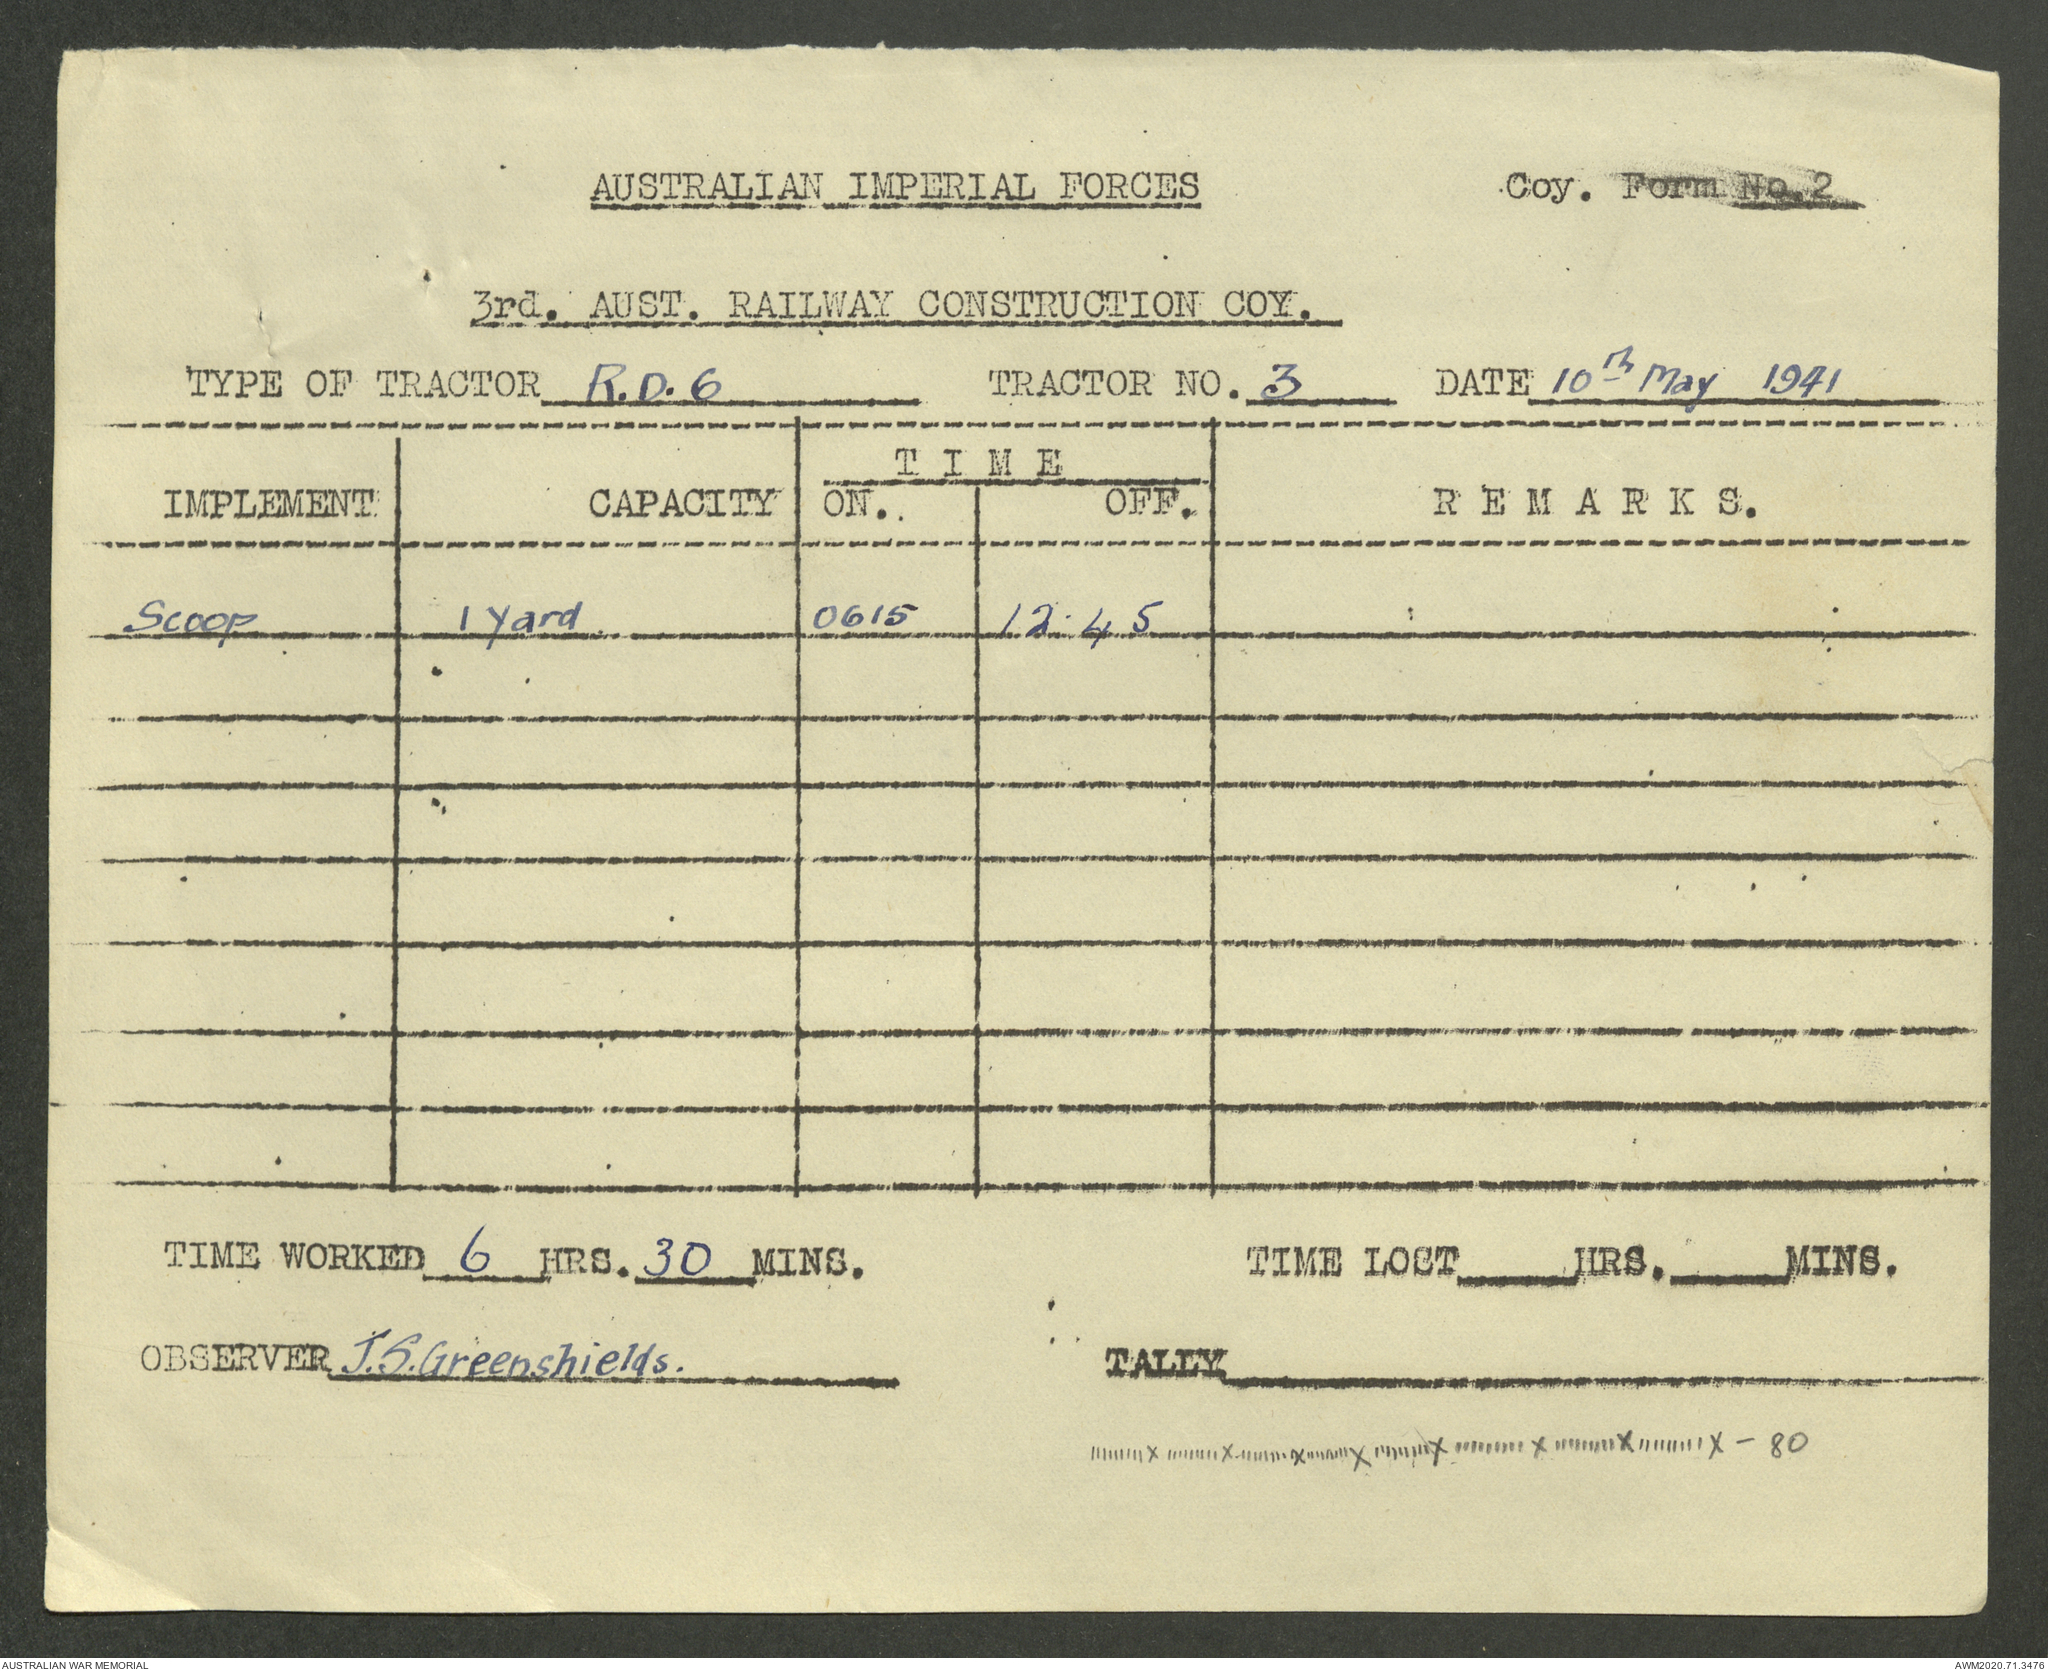 AUSTRALIAN IMPERIAL FORCES Coy. Form No.2
3rd. AUST. RAILWAY CONSTRUCTION COY.
TYPE OF TRACTOR R.D.6 TRACTOR NO. 3 DATE 10th May 1941
T I M E
IMPLEMENT CAPACITY ON. OFF. R E M A R K S.
Scoop 1 Yard 0615 12.45
TIME WORKED 6 HRS. 30 MINS. TIME LOST HRS. MINS.
OBSERVER J.S.Greenshields. TALLY
X X X X X X X X - 80
AUSTRALIAN WAR MEMORIAL AWM2020.71.3476